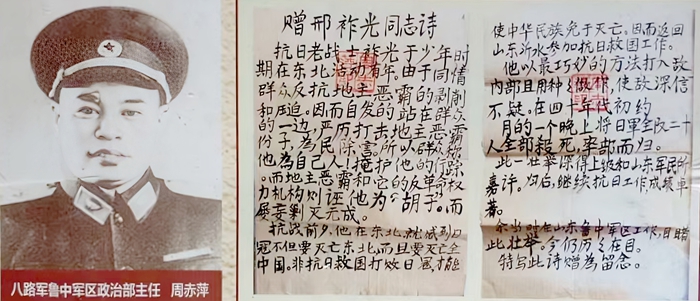 八路军鲁中军区政治部主任 周赤萍
赠邢祚光同志诗
抗日老战士祚光于少年时
期在东北活动有年。由于同情
群众反抗地主恶霸的剥削
和压迫。因而自发的站在群众
的一边，严厉打击地主恶霸
份子，为民除害所以群众称
他为自己人！掩护他的行踪
。而地主恶霸和它的反革命权
力机构则诬他为“胡子”，而
屡妄剿灭无成。
抗战前夕，他在东北，就感到日
冠不但要灭亡东北，而且要灭亡全
中国。非抗日救国打败日冦，才能
使中华民族免于灭亡。因而返回
山东沂水参加抗日救国工作。
他以最巧妙的方法打入敌
内部且用种々做作，使敌深信
不疑。在四十年代初约
月的一个晚上将日军全级二十
人全部殺死，率部而归。
此一壮举深得上级和山东军民的
嘉许。归后，继续抗日工作，成绩卓
著。
余当时在山东鲁中军区工作，目睹
此壮举。今仍历々在目。
特写此诗赠为留念。